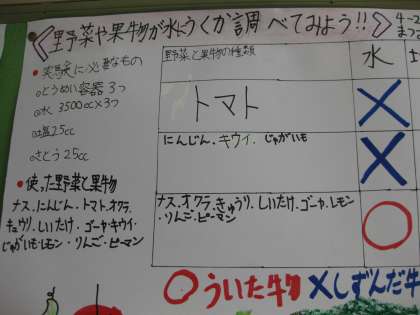 野菜や果物が水にうくか調べてみよう!!
野菜と果物の種類
水
トマト
×
にんじん、キウイ、じゃがいも
×
ナス、オクラ、きゅうり、しいたけ、ゴーヤ、レモン
・りんご・ピーマン
○
●実験に必要なもの
○とうめい容器 3つ
○水 3500cc×3つ
○塩 25cc
○さとう 25cc
●使った野菜と果物
ナス、にんじん、トマト、オクラ、
キュウリ、しいたけ、ゴーヤ・キウイ・
じゃがいも・レモン・りんご・ピーマン
○ういた物 ×しずんだ